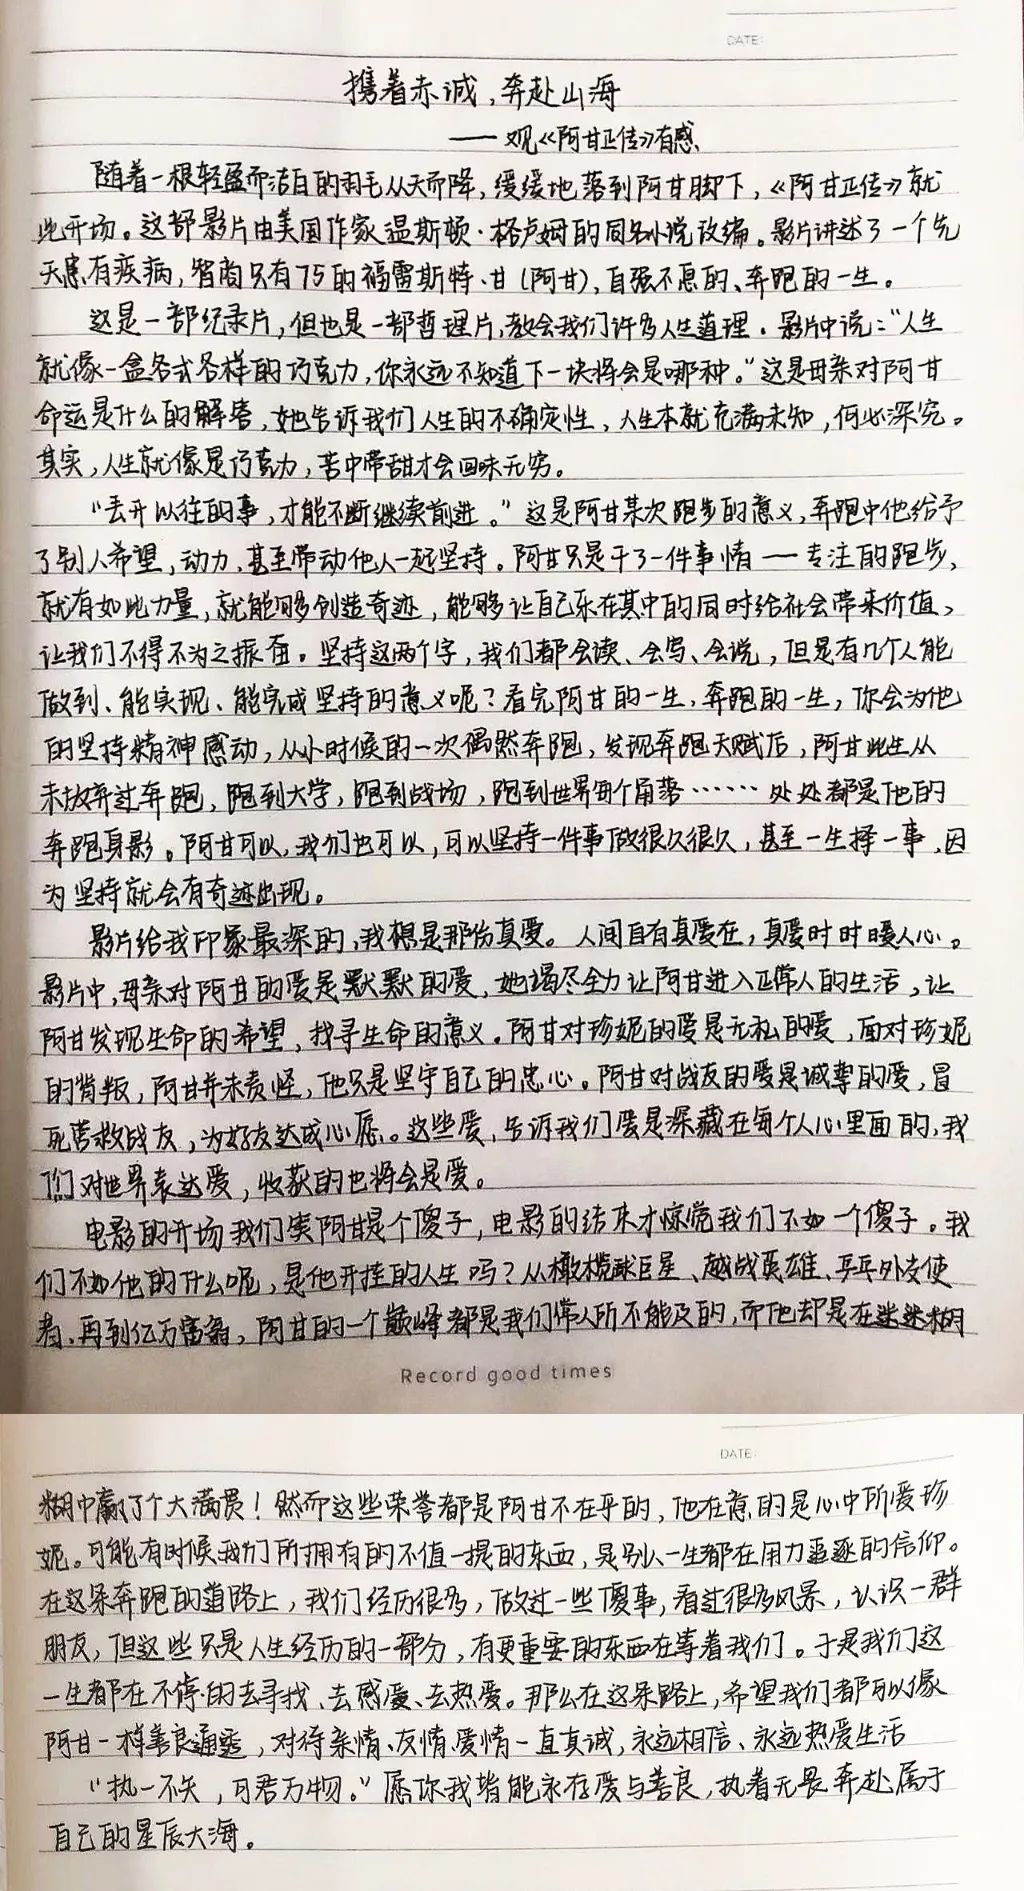 DATE:
携着赤诚,奔赴山海
——观《阿甘正传》有感
随着一根轻盈而洁白的羽毛从天而降,缓缓地落到阿甘脚下,《阿甘正传》就
此开场。这部影片由美国作家温斯顿·格卢姆的同名小说改编。影片讲述了一个先
天患有疾病,智商只有75的福雷斯特·甘(阿甘),自强不息的、奔跑的一生。
这是一部纪录片,但也是一部哲理片,教会我们许多人生道理。影片中说:"人生
就像一盒各式各样的巧克力,你永远不知道下一块将会是哪种。"这是母亲对阿甘
命运是什么的解答,她告诉我们人生的不确定性,人生本就充满未知,何必深究。
其实,人生就像是巧克力,苦中带甜才会回味无穷。
"丢开以往的事,才能不断继续前进。"这是阿甘某次跑步的意义,奔跑中他给予
了别人希望,动力,甚至带动他人一起坚持。阿甘只是干了一件事情——专注的跑步,
就有如此力量,就能够创造奇迹,能够让自己乐在其中的同时给社会带来价值、
让我们不得不为之振奋。坚持这两个字,我们都会读、会写、会说,但是有几个人能
做到、能实现、能完成坚持的意义呢?看完阿甘的一生,奔跑的一生,你会为他
的坚持精神感动,从小时候的一次偶然奔跑,发现奔跑天赋后,阿甘此生从
未放弃过奔跑,跑到大学,跑到战场,跑到世界每个角落……处处都是他的
奔跑身影。阿甘可以,我们也可以,可以坚持一件事做很久很久,甚至一生择一事,因
为坚持就会有奇迹出现。
影片给我印象最深的,我想是那份真爱。人间自有真爱在,真爱时时暖人心。
影片中,母亲对阿甘的爱是默默的爱,她竭尽全力让阿甘进入正常人的生活,让
阿甘发现生命的希望,找寻生命的意义。阿甘对珍妮的爱是无私的爱,面对珍妮
的背叛,阿甘并未责怪,他只是坚守自己的忠心。阿甘对战友的爱是诚挚的爱,冒
死营救战友,为好友达成心愿。这些爱,告诉我们爱是深藏在每个人心里面的,我
们对世界表达爱,收获的也将会是爱。
电影的开场我们笑阿甘是个傻子,电影的结束才惊觉我们不如一个傻子。我
们不如他的什么呢,是他开挂的人生吗?从橄榄球巨星、越战英雄、乒乓外交使
者、再到亿万富翁,阿甘的一个巅峰都是我们常人所不能及的,而他却是在迷迷糊
Record good times
DATE:
糊中赢了个大满贯!然而这些荣誉都是阿甘不在乎的,他在意的是心中所爱珍
妮。可能有时候我们所拥有的不值一提的东西,是别人一生都在用力追逐的信仰。
在这条奔跑的道路上,我们经历很多,做过一些傻事,看过很多风景,认识一群
朋友,但这些只是人生经历的一部分,有更重要的东西在等着我们。于是我们这
一生都在不停的去寻找、去感爱、去热爱。那么在这条路上,希望我们都可以像
阿甘一样善良通透,对待亲情、友情、爱情一直真诚,永远相信、永远热爱生活
"执一不失,可君万物。"愿你我皆能永存爱与善良,执着无畏奔赴属于
自己的星辰大海。